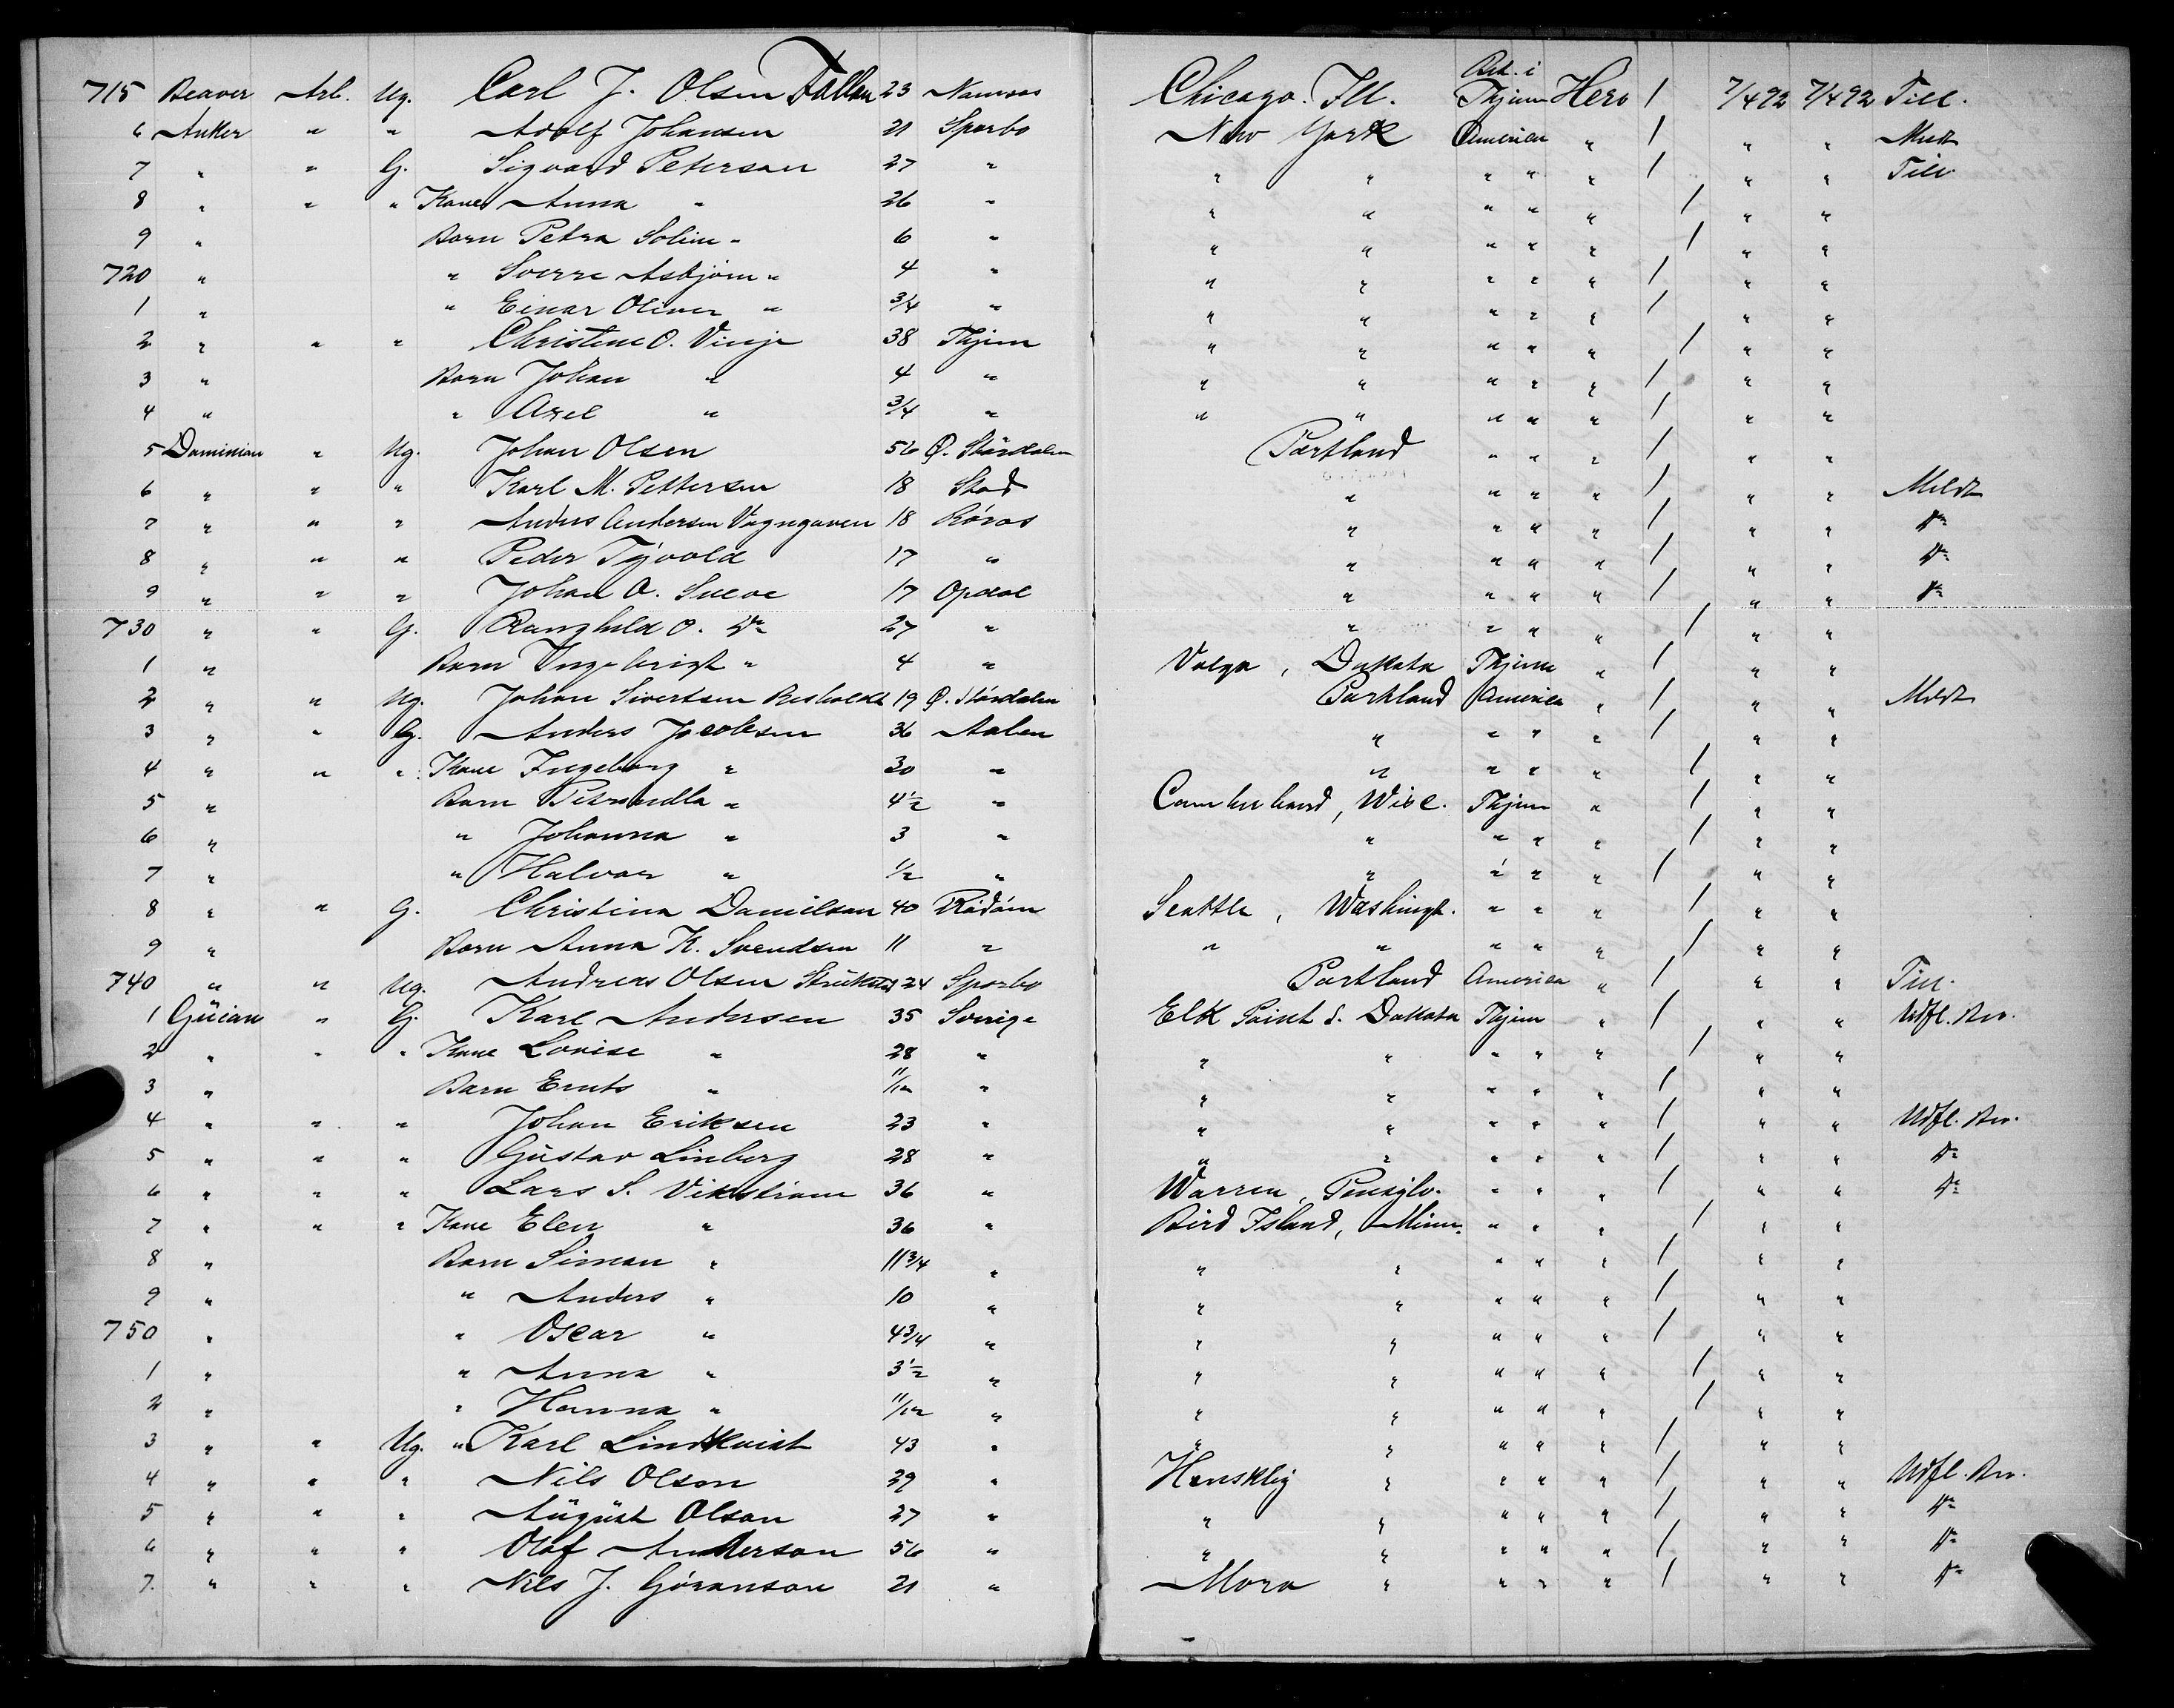 715 Beaver Arb. Ug. Carl J. Olsen Fallan 23 Namsos Chicago. Ill. Bet. i Thjem Hero / 7/4 92 7/4 92 Till.
6 Anker " " Adolf Johansen 21 Sparbo New York America " / " " Meldt
7 " " G. Sigvard Peterson 27 " " " " " " / " " Till.
8 " " " Kone Anna " 26 " " " " " " / " "
9 " Barn Petra Solin " 6 " " " " " " / " "
720 " " Sverre Asbjørn " 4 " " " " " " / " "
1 " " Einar Oliver " 3/4 " " " " " " / " "
2 " " " Christine O. Vinje 38 Thjem " " " " " / " "
3 " Barn Johan " 4 " " " " " " / " "
4 " " Axel " 3/4 " " " " " " / " "
5 Dominian " Ug. Johan Olsen 56 Ø. Stördalen Portland " " " / " "
6 " " " Karl M. Pettersen 18 Stod " " " " / " " Meldt
7 " " " Anders Andersen Vogngaven 18 Röros " " " " / " " Do
8 " " " Peder Tyvold 17 " " " " " / " " Do
9 " " " Johan O. Sneve 17 Opdal " " " " / " " Do
730 " " G. Ranghild O. Do 27 " " " " " / " "
1 " Barn Ingebrigt " 4 " Volga, Dakota Thjem " / " "
2 " " Ug. Johan Sivertsen 19 Ø. Stördalen Portland America " / " " Meldt
3 " " G. Anders Jacobsen 36 Aalen " " " " / " "
4 " " " Kone Ingeborg " 30 " " " " " / " "
5 " Barn Petronella " 4 1/2 " Cumberland, Wisc. Thjem " / " "
6 " " Johanna " 3 " " " " " / " "
7 " " Halvor " 1/2 " " " " " / " "
8 " " G. Christina Danielson 40 Rödön Seattle, Washingt. " " " / " "
9 " Barn Anna K. Svendsen 11 " " " " " " / " "
740 " " Ug. Andreas Olsen 24 Sparbo Portland America " / " " Till.
1 Güian " G. Karl Andersen 35 Sverige Elk Point S. Dakota Thjem " / " " Udfl. Bev.
2 " " " Kone Lovise " 28 " " " " " " / " "
3 " Barn Ernts " 11/12 " " " " " " / " "
4 " " " Johan Eriksen 23 " " " " " " / " " Udfl. Bev.
5 " " " Güstav Linberg 28 " " " " " " / " " Do
6 " " " Lars S. Vikström 36 " Warren, Pensylv. " " " / " " Do
7 " " " Kone Elen " 36 " Bird Island, Minn. " " " / " "
8 " Barn Simon " 11 3/4 " " " " " " / " "
9 " " Anders " 10 " " " " " " / " "
750 " " Oscar " 4 3/4 " " " " " " / " "
1 " " Anna " 3 1/2 " " " " " " / " "
2 " " Hanna " 11/12 " " " " " " / " "
3 " " Ug. " Karl Lindkvist 43 " " " " " " / " "
4 " " " Nils Olson 29 " Henskley " " " " / " " Udfl. Bev.
5 " " " Aügüst Olson 27 " " " " " " / " " Do
6 " " " Olof Anderson 56 " " " " " " / " " Do
7. " " " Nils J. Göranson 21 " Mora " " " " / " " Do